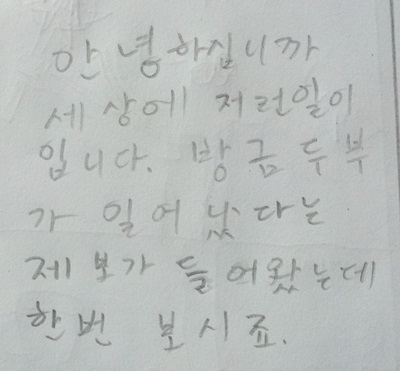 안녕하십니까
세상에 저런일이
입니다. 방금 두부
가 일어 났다는
제보가 들어왔는데
한번 보시죠.